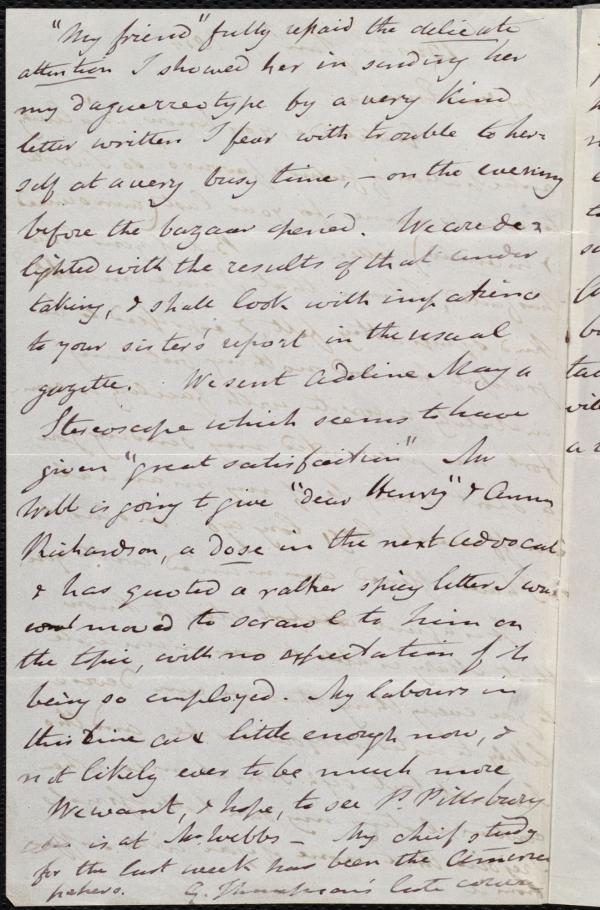 "My friend" fully repaid the delicate
attention I showed her in sending her
my daguerreotype by a very kind
letter written I fear with trouble to her=
self at a very busy time, – on the evening
before the bazaar opened. We are de=
lighted with the results of that under
taking, & shall look with impatience
to your sister's report in the usual
gazette. We sent Adeline May a
Stereoscope which seems to have
given "great satisfaction" Mr
Webb is going to give "dear Henry" & Anna
Richardson, a dose in the next Advocate
& has quoted a rather spicy letter I was
moved to scrawl to him on
the topic, with no expectation of its
being so employed. My labours in
this line are little enough now, &
not likely ever to be much more
We want, & hope, to see P. Pillsbury
is at Mr Webbs – My chief study
for the last week has been the American
papers. G. Thompson's late